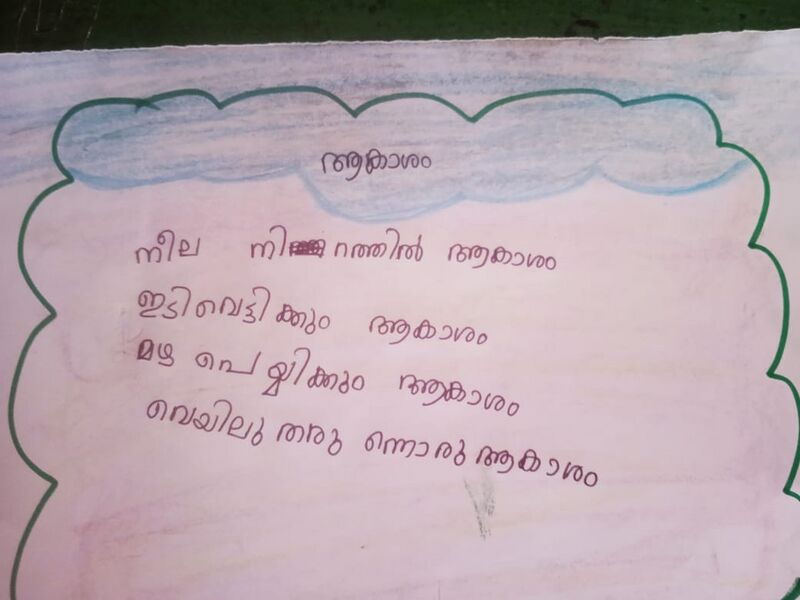 ആകാശം
നീല നിറത്തിൽ ആകാശം
ഇടിവെട്ടിക്കും ആകാശം
മഴ പെയ്യിക്കും ആകാശം
വെയിലു തരു ന്നൊരു ആകാശം